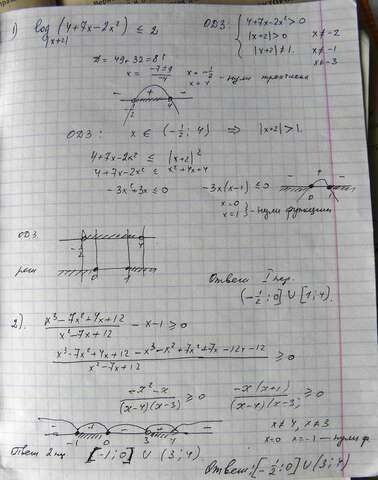 1) log|x+2| (4+7x-2x²) ≤ 2
ОДЗ { 4+7x-2x²>0
|x+2|>0 x≠-2
|x+2|≠1. x≠-1
x≠-3
D = 49+32=81
x = (-7±9)/-4 x=-1/2 x=4 - нули трехчлена
- + -
-1/2 4
ОДЗ: x ∈ (-1/2; 4) ⇒ |x+2|>1.
4+7x-2x² ≤ |x+2|²
4+7x-2x² ≤ x²+4x+4
-3x²+3x≤0 -3x(x-1)≤0 - + -
0 1
x=0
x=1 } - нули функции
ОДЗ
-1/2 4
реш
0 1
Ответ I нер.
(-1/2; 0] ∪ [1; 4).
2). (x³-7x²+4x+12)/(x²-7x+12) - x-1 ≥ 0
(x³-7x²+4x+12-x³-x²+7x²+7x-12x-12)/(x²-7x+12) ≥ 0
(-x²-x)/((x-4)(x-3)) ≥ 0 (-x(x+1))/((x-4)(x-3)) ≥ 0
- + - + -
-1 0 3 4
x≠4, x≠3
x=0 x=-1 - нули ф.
Ответ 2 нер [-1; 0] ∪ (3; 4).
Ответ: (-1/2; 0] ∪ (3; 4)